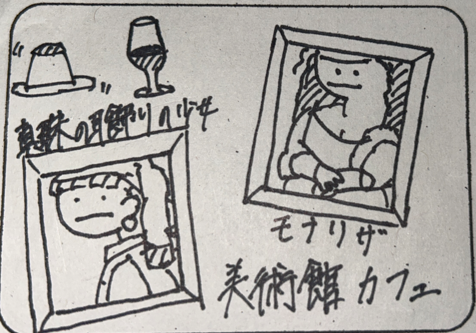 真珠の耳飾りの少女
モナリザ
美術館カフェ